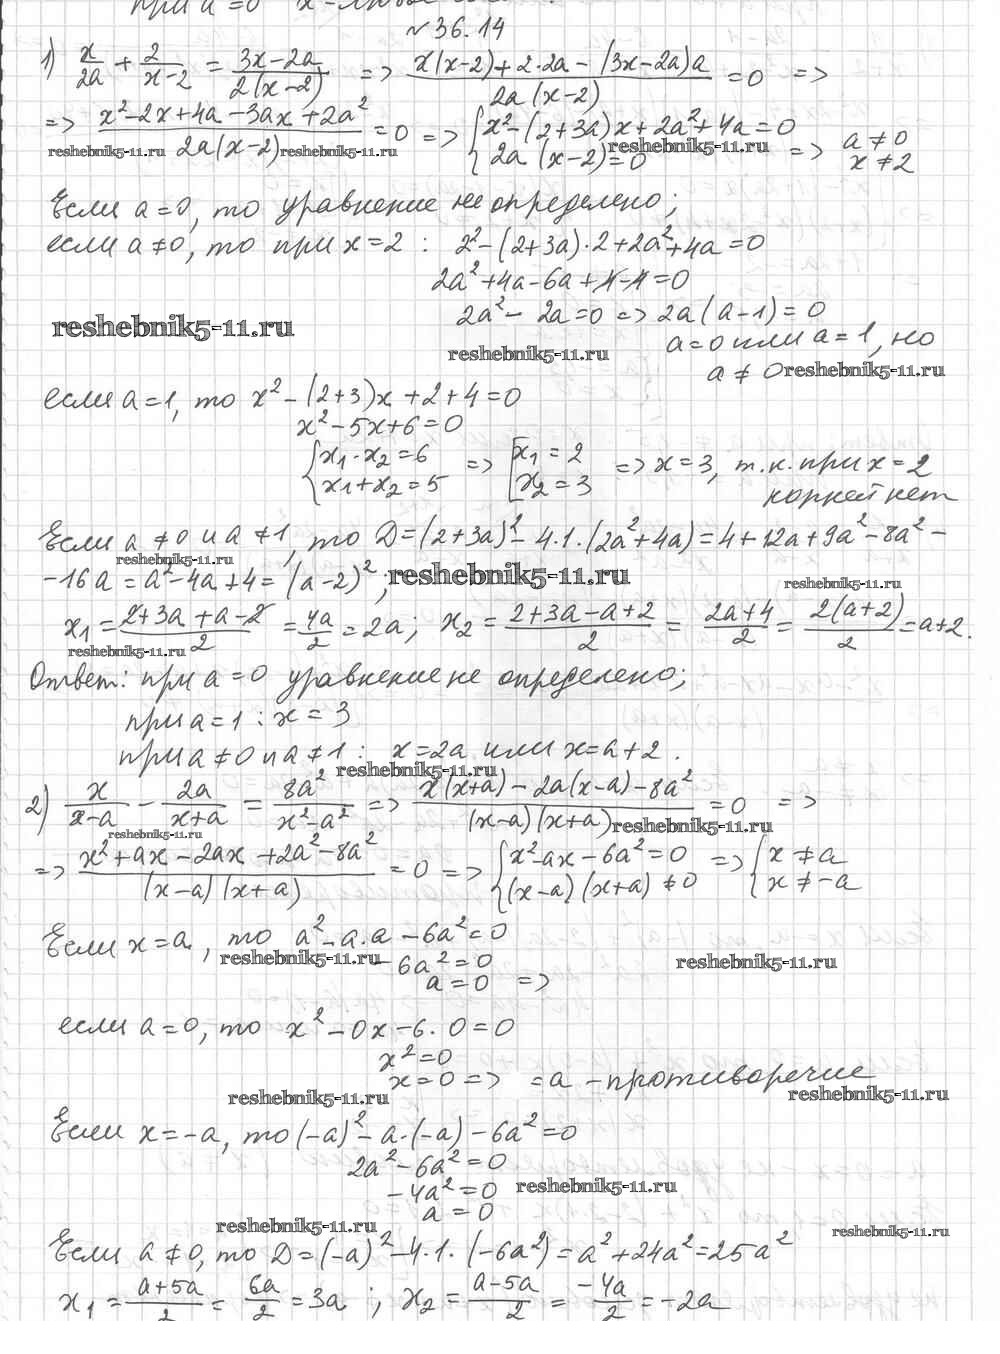 при a = 0 x - любое
№ 36.14
1) x/2a + 2/(x-2) = (3x-2a)/(2(x-2)) => (x(x-2)+2·2a-(3x-2a)a)/(2a(x-2)) = 0 =>
=> (x²-2x+4a-3ax+2a²)/(2a(x-2)) = 0 => { x²-(2+3a)x+2a²+4a=0 ; 2a(x-2)=0 => a ≠ 0 x ≠ 2
reshebnik5-11.ru reshebnik5-11.ru reshebnik5-11.ru
Если a=0, то уравнение не определено;
если a ≠ 0, то при x=2 : 2²-(2+3a)·2+2a²+4a=0
2a²+4a-6a+4-4=0
2a²-2a=0 => 2a(a-1)=0
reshebnik5-11.ru
a=0 или a=1, но
reshebnik5-11.ru
a ≠ 0 reshebnik5-11.ru
если a=1, то x²-(2+3)x+2+4=0
x²-5x+6=0
{ x₁·x₂=6 ; x₁+x₂=5 => [ x₁=2 ; x₂=3 => x=3, т.к. при x=2
корней нет
Если a ≠ 0 и a ≠ 1, то D=(2+3a)²-4·1·(2a²+4a)=4+12a+9a²-8a²-
reshebnik5-11.ru
-16a=a²-4a+4=(a-2)²; reshebnik5-11.ru reshebnik5-11.ru
x₁=(2+3a+a-2)/2=4a/2=2a; x₂=(2+3a-a+2)/2=(2a+4)/2=2(a+2)/2=a+2.
reshebnik5-11.ru
Ответ: при a=0 уравнение не определено;
при a=1 : x=3
при a ≠ 0 и a ≠ 1 : x=2a или x=a+2.
reshebnik5-11.ru
2) x/(x-a) - 2a/(x+a) = 8a²/(x²-a²) => (x(x+a)-2a(x-a)-8a²)/((x-a)(x+a)) = 0 =>
reshebnik5-11.ru reshebnik5-11.ru
=> (x²+ax-2ax+2a²-8a²)/((x-a)(x+a)) = 0 => { x²-ax-6a²=0 ; (x-a)(x+a) ≠ 0 => { x ≠ a ; x ≠ -a
Если x=a, то a²-a·a-6a²=0
reshebnik5-11.ru -6a²=0 reshebnik5-11.ru
a=0 =>
если a=0, то x²-0x-6·0=0
x²=0
x=0 => =a - противоречие
reshebnik5-11.ru reshebnik5-11.ru
Если x=-a, то (-a)²-a·(-a)-6a²=0
2a²-6a²=0
-4a²=0 reshebnik5-11.ru
a=0
reshebnik5-11.ru reshebnik5-11.ru
Если a ≠ 0, то D=(-a)²-4·1·(-6a²)=a²+24a²=25a²
x₁=(a+5a)/2=6a/2=3a ; x₂=(a-5a)/2=-4a/2=-2a